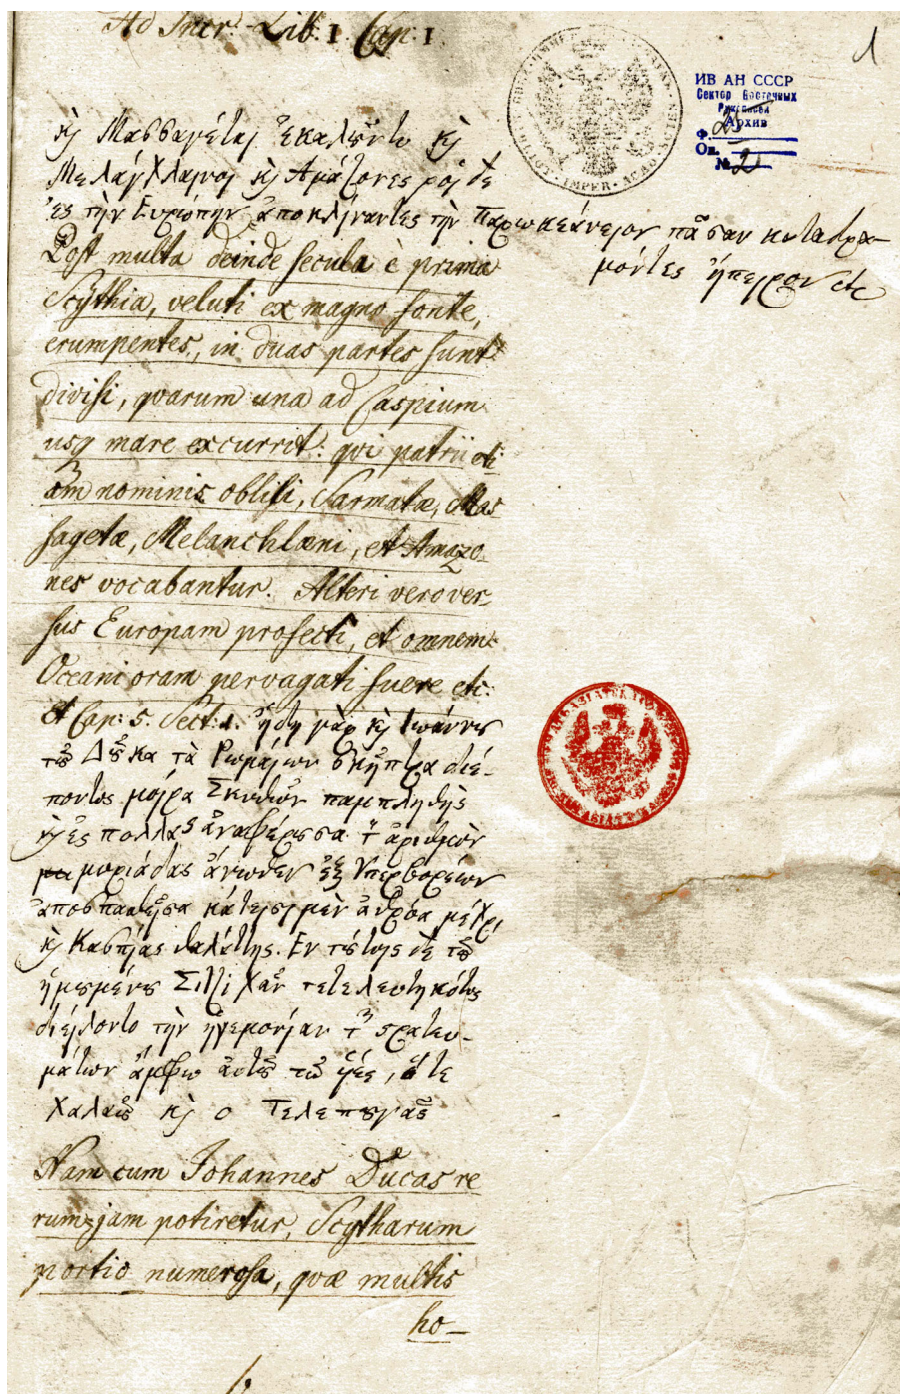 Ad Incr. Lib. I. Cap: I
1
ИВ АН СССР
Сектор Восточных
Рукописей
Архив
Ф. 25
Оп.
№ 2
κϳ Μασσαγέται ἐκαλοῦντο κϳ
Μελάγχλαινοι κϳ Ἀμάζονες ροι δε
ἐς τὴν Ευρώπην ἀποκλίναντες τὴν Παρωκεάνειον πᾶσαν καταδρα-
μόντες ἤπειρον etc
Post multa deinde secula è prima
Scythia, veluti ex magno fonte,
erumpentes, in duas partes sunt
divisi, qvarum una ad Caspium
usq mare excurrit: qvi patrii eti
am nominis obliti, Sarmatæ, Mas
sagetæ, Melanchlæni, et Amazo-
nes vocabantur. Alteri vero ver-
sus Europam profecti, et omnem
Oceani oram pervagati fuere etc:
et Cap: 5. Sect: 1. ἤδη γὰρ κϳ Ιωάννου
τοῦ Δοῦκα τὰ Ρωμαίων σκῆπτρα διέ-
ποντος μοίρα Σκυθῶν παμπληθὴς
κϳ ἐς πολλὰς ἀναφέρουσα τ ἀριθμὸν
μυριάδας ἄνωθεν ἐξ Υπερβορείων
ἀποσπασθεῖσα κάτεισι μὲν ἀθρόα μέχρι
κϳ Κασπίας θαλάττης. Εν τούτοις δε τοῦ
ἡγουμένου Σιτζι Χαν τετελευτηκότος
διείλοντο τὴν ἡγεμονίαν τ στρατευ-
μάτων ἄμφω αὐτοῦ τὼ υἱέε, ὅ τε
Χαλαοῦ κϳ ο Τελεπουγᾶς
Nam cum Johannes Ducas re
rum jam potiretur, Scytharum
portio numerosa, qvæ multis
ho-